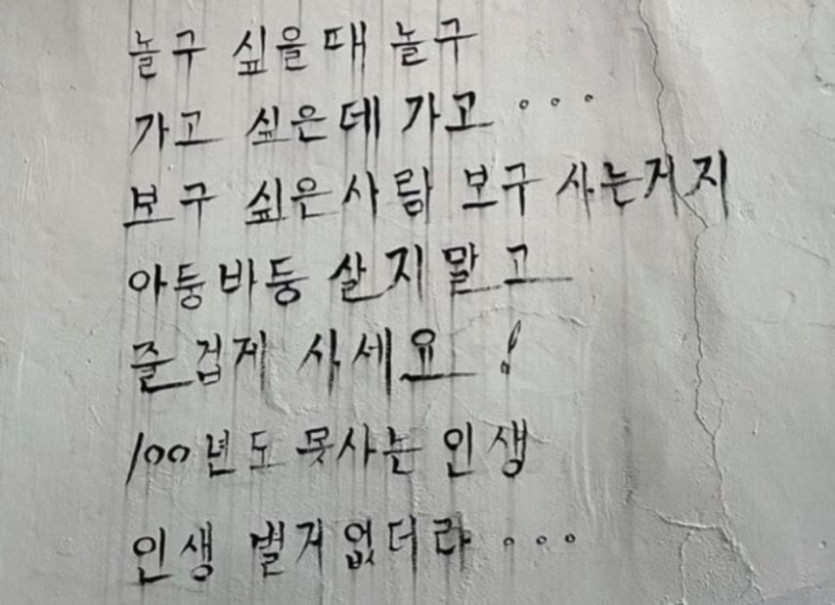 놀구 싶을때 놀구
가고 싶은데 가고...
보구 싶은사람 보구 사는거지
아둥바둥 살지말고
줄겁게 사세요!
100년도 못사는 인생
인생 별거없더라...